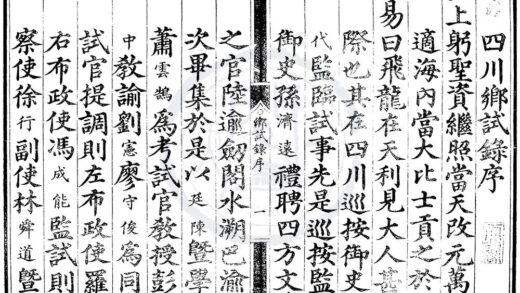 四川鄉試錄序
上躬聖資繼照當天改元萬
適海內當大比士貢之於
易曰飛龍在天利見大人
際也其在四川巡按御史
代監臨試事先是巡按監
御史孫濟遠禮聘四方文
鄉試錄序 一
之官陸逾劒閣水溯巴渝
次畢集於是以廷陳曁學
蕭雲鵠爲考試官教授彭
中教諭劉憲廖守俊爲同
試官提調則左布政使羅
右布政使馮成能監試則
察使徐行副使林舜道曁